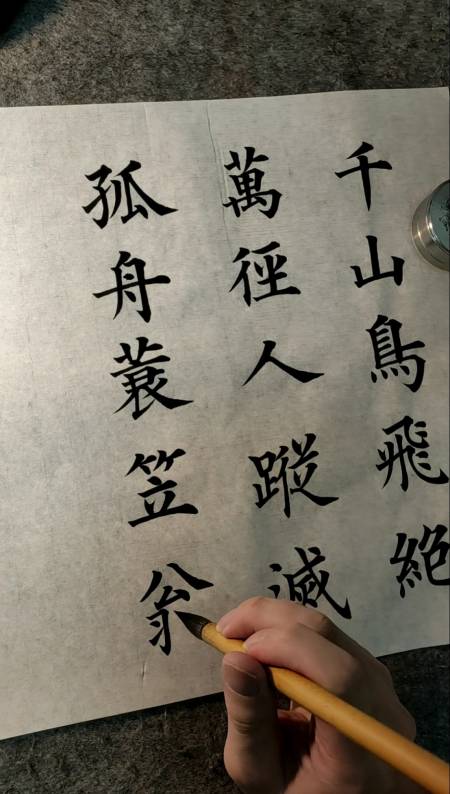 千山鳥飛絶
萬徑人蹤滅
孤舟蓑笠翁